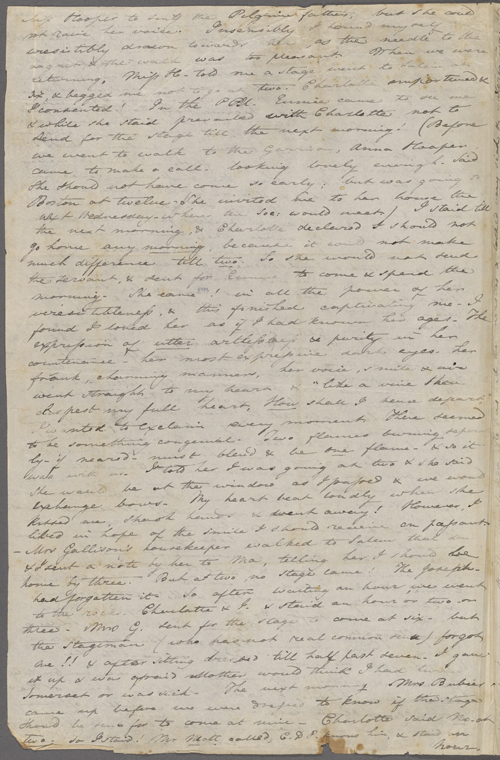 Miss Hooper to sing the Pilgrim fathers, but she could
not raise her voice. Insensibly I found myself
irresistibly drawn towards her, as the needle to the
magnet & the walk was too pleasant. When we were
returning, Miss H— told me a stage went to Salem at
six, & begged me not to go at two. Charlotte importuned &
I consented! In the P.M. Eunice came to see me
& while she staid prevailed with Charlotte not to
send for the stage till the next morning! (Before
we went to walk to the Garrison, Anna Hooper
came to make a call. looking lovely enough. Said
she should not have come so early, but was going to
Boston at twelve. She invited me to her house the
next Wednesday— where the Soc. would meet) I staid till
the next morning, & Charlotte declared I should not
go home any morning because it would not make
much difference till two. So she would not send
the servant, & sent for Eunice to come & spend the
morning. She came! in all the power of her
irresistibleness, & this finished captivating me. I
found I loved her as if I had known her ages. The
expression of utter artlessness & purity in her
countenance— her most expressive dark eyes. her
frank, charming manners, her voice, smile & air
went straight to my heart & "like a vine
deepest my full heart, How shall I hence depart"
I wanted to exclaim every moment. There seemed
to be something congenial. Two flames burning separate-
ly—if neared— must blend & be one flame— & so it
was with us. I told her I was going at two & she said
she would be at the window as I passed & we would
exchange bows. My heart beat loudly when she
kissed me, shook hands & went away! However, I
lived in hope of the smile I should receive en passant
— Mrs Gallison's housekeeper walked to Salem that
& I sent a note by her to Ma, telling her I should be
home by three. But at two, no stage came! The Joseph
had forgotten it. So after waiting an hour, we went
to the rock. Charlotte & I. & staid an hour or two
three. Mrs G. sent for the stage to come at six. but
the stageman (who has not real common sense) forgot
me!! & after sitting dressed till half past seven. I gave
it up & was afraid Mother would think I had
The next morning Mrs. Bubier
came up before we were to know if the stage
should be sent for to come at nine. Charlotte said No. at
two. So I staid! Mr called, E. D. & him, & staid an
hour.